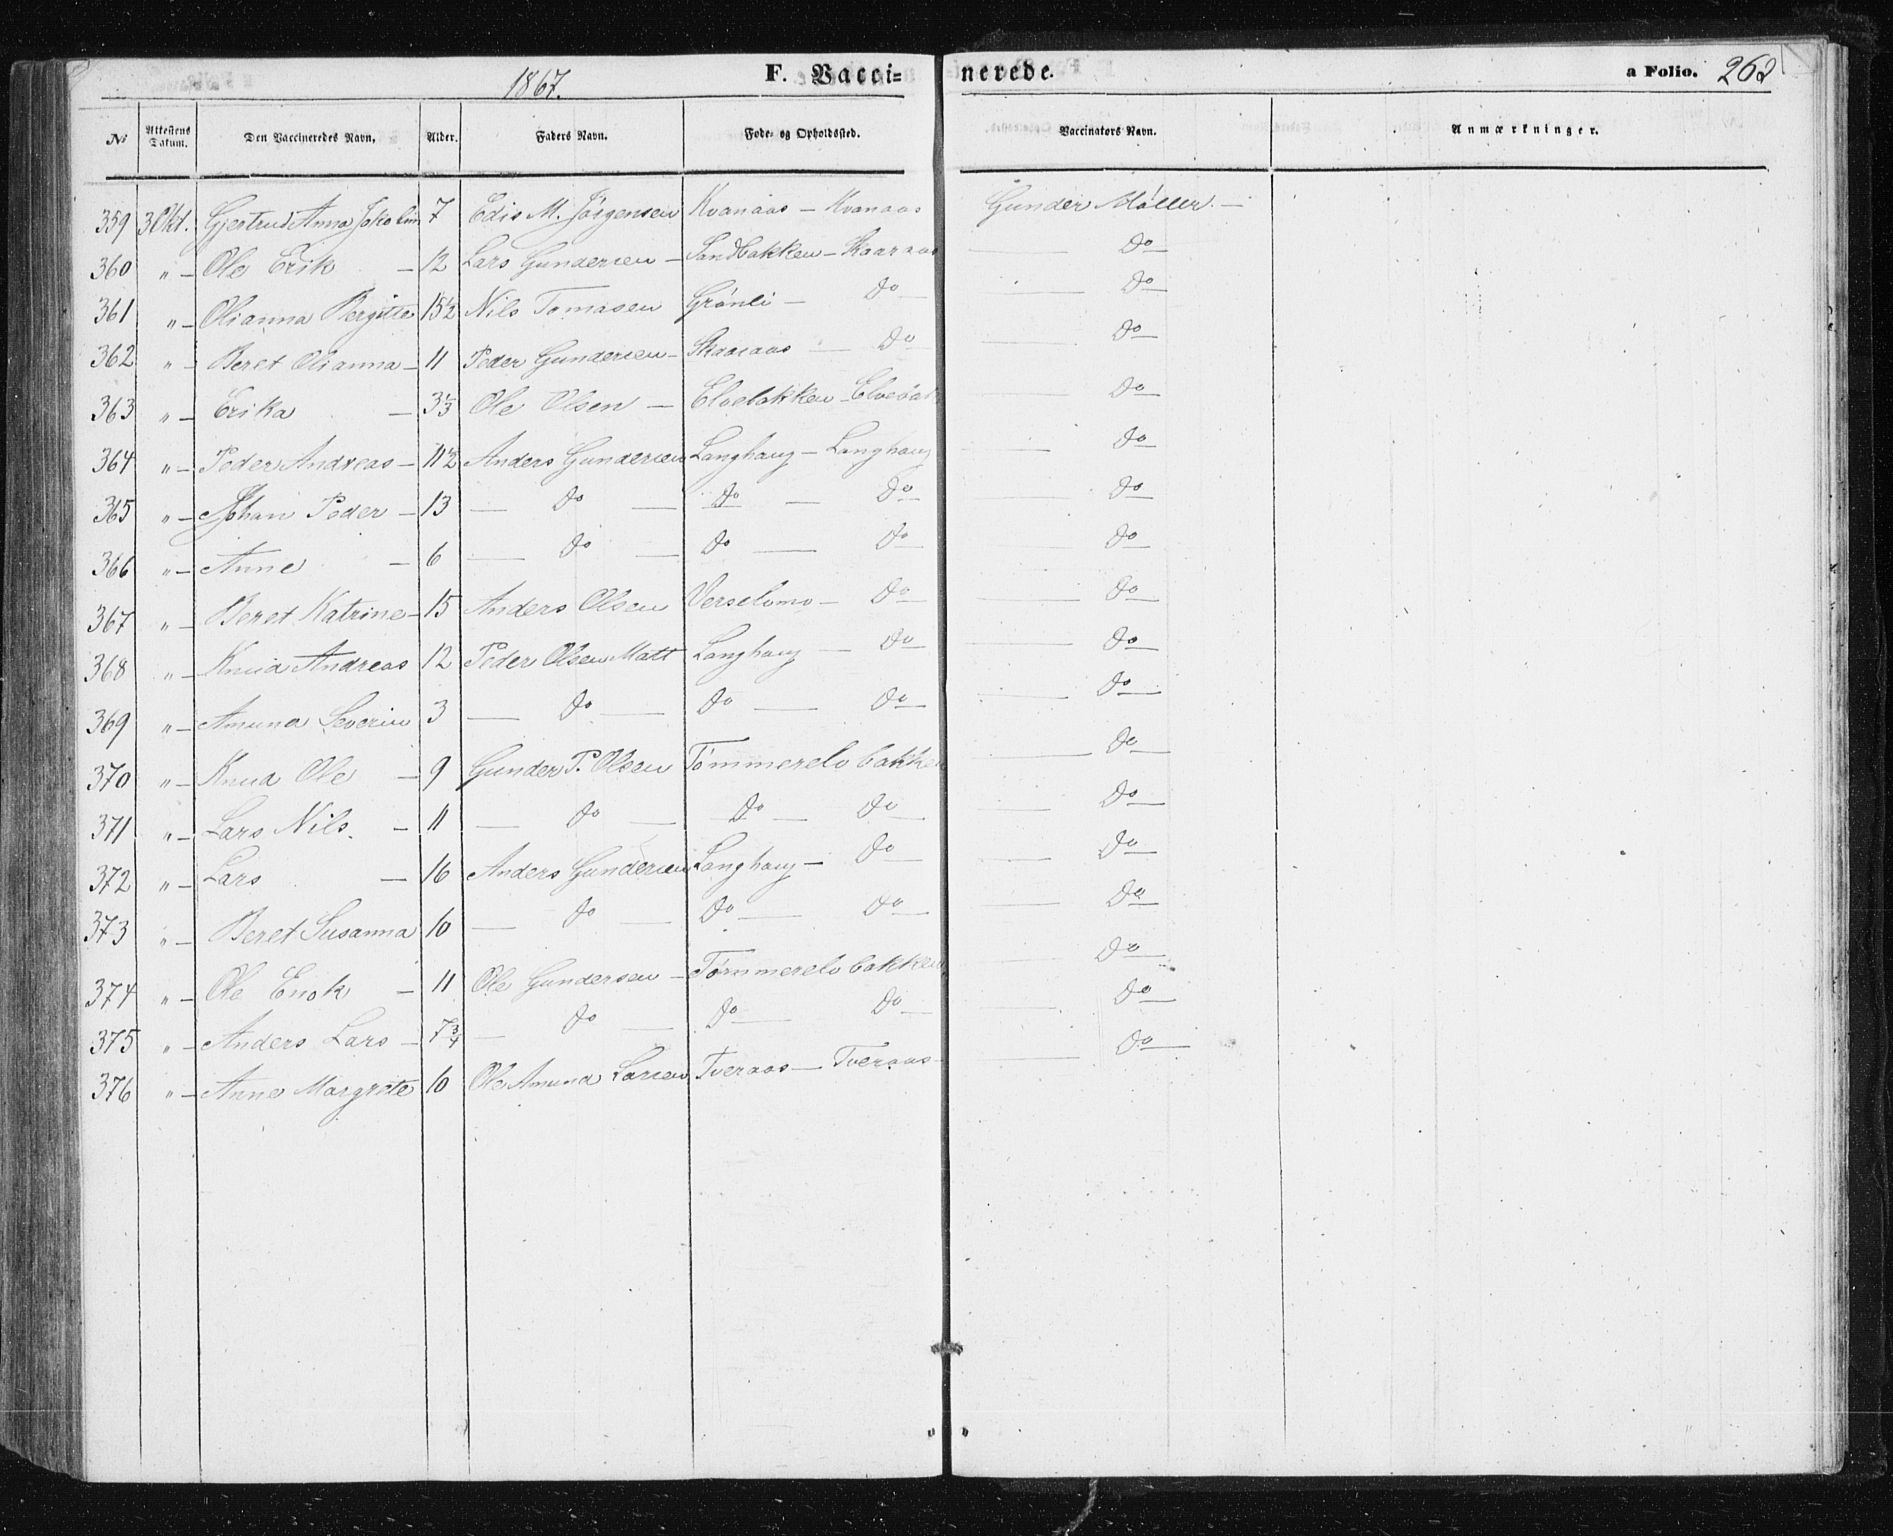 1867. F. Vacci= nerede. a Folio. 262
No Attestens Datum. Den Vaccineredes Navn. Alder. Faders Navn. Føde- og Opholdssted. Vaccinators Navn. Anmærkninger.
359 3 Okt. Gjertrud Anna Jakobin 7 Edis M. Jörgensen Kvanaas — Kvanaas Gunder Møller —
360 " — Ole Erik — 12 Lars Gundersen — Sandbakken — Skaaraas — Do —
361 " — Olianna Bergitte 15½ Nils Tomasen Grønli — Do — — Do —
362 " — Beret Olianna — 11 Peder Gundersen — Skaaraas — Do — Do —
363 " — Erika — 3⅓ Ole Olsen — Elvebakken — — Do —
364 " — Peder Andreas — 11½ Anders Gundersen Langhaug — Langhaug — Do —
365 " — Johan Peder — 13 — Do — Do — Do — — Do —
366 " — Anne — 6 — Do — Do — Do — — Do —
367 " — Beret Katrine — 15 Anders Olsen Verselvmo — Do — — Do —
368 " — Knud Andreas 12 Peder Olsen Matt Langhaug — Do — — Do —
369 " — Amund Severin 3 — Do — Do — Do — — Do —
370 " — Knud Ole — 9 Gunder P. Olsen Tømmerelvbakken — Do —
371 " — Lars Nils. — 11 — Do — Do — Do — — Do —
372 " — Lars — 16 Anders Gundersen Langhaug — Do — — Do —
373 " — Beret Susanna 10 — Do — Do — Do — — Do —
374 " — Ole Enok — 11 Ole Gundersen — Tømmerelvbakken — Do —
375 " — Anders Lars — 7¾ — Do — Do — Do — — Do —
376 " — Anne Margrete 10 Ole Amund Larsen Tveraas — Tveraas — — Do —